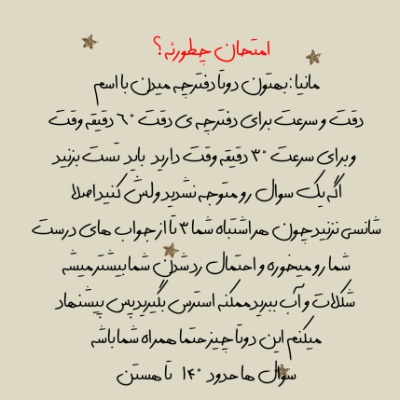 امتحان چطوریه؟
مانیا: بهتون دوتا دفترچه میدن با اسم
دقت و سرعت برای دفترچه ی دقت ۶۰ دقیقه وقت
و برای سرعت ۳۰ دقیقه وقت دارید باید تست بزنید
اگه یک سوال رو متوجه نشدید ولش کنید اصلا
شانسی نزنید چون هر اشتباه شما ۳ تا از جواب های درست
شما رو میخوره و احتمال رد شدن شما بیشتر میشه
شکلات و آب ببرید ممکنه استرس بگیرید پس پیشنهاد
میکنم این دوتا چیز حتما همراه شما باشه
سوال ها حدود ۱۴۰ تا هستن